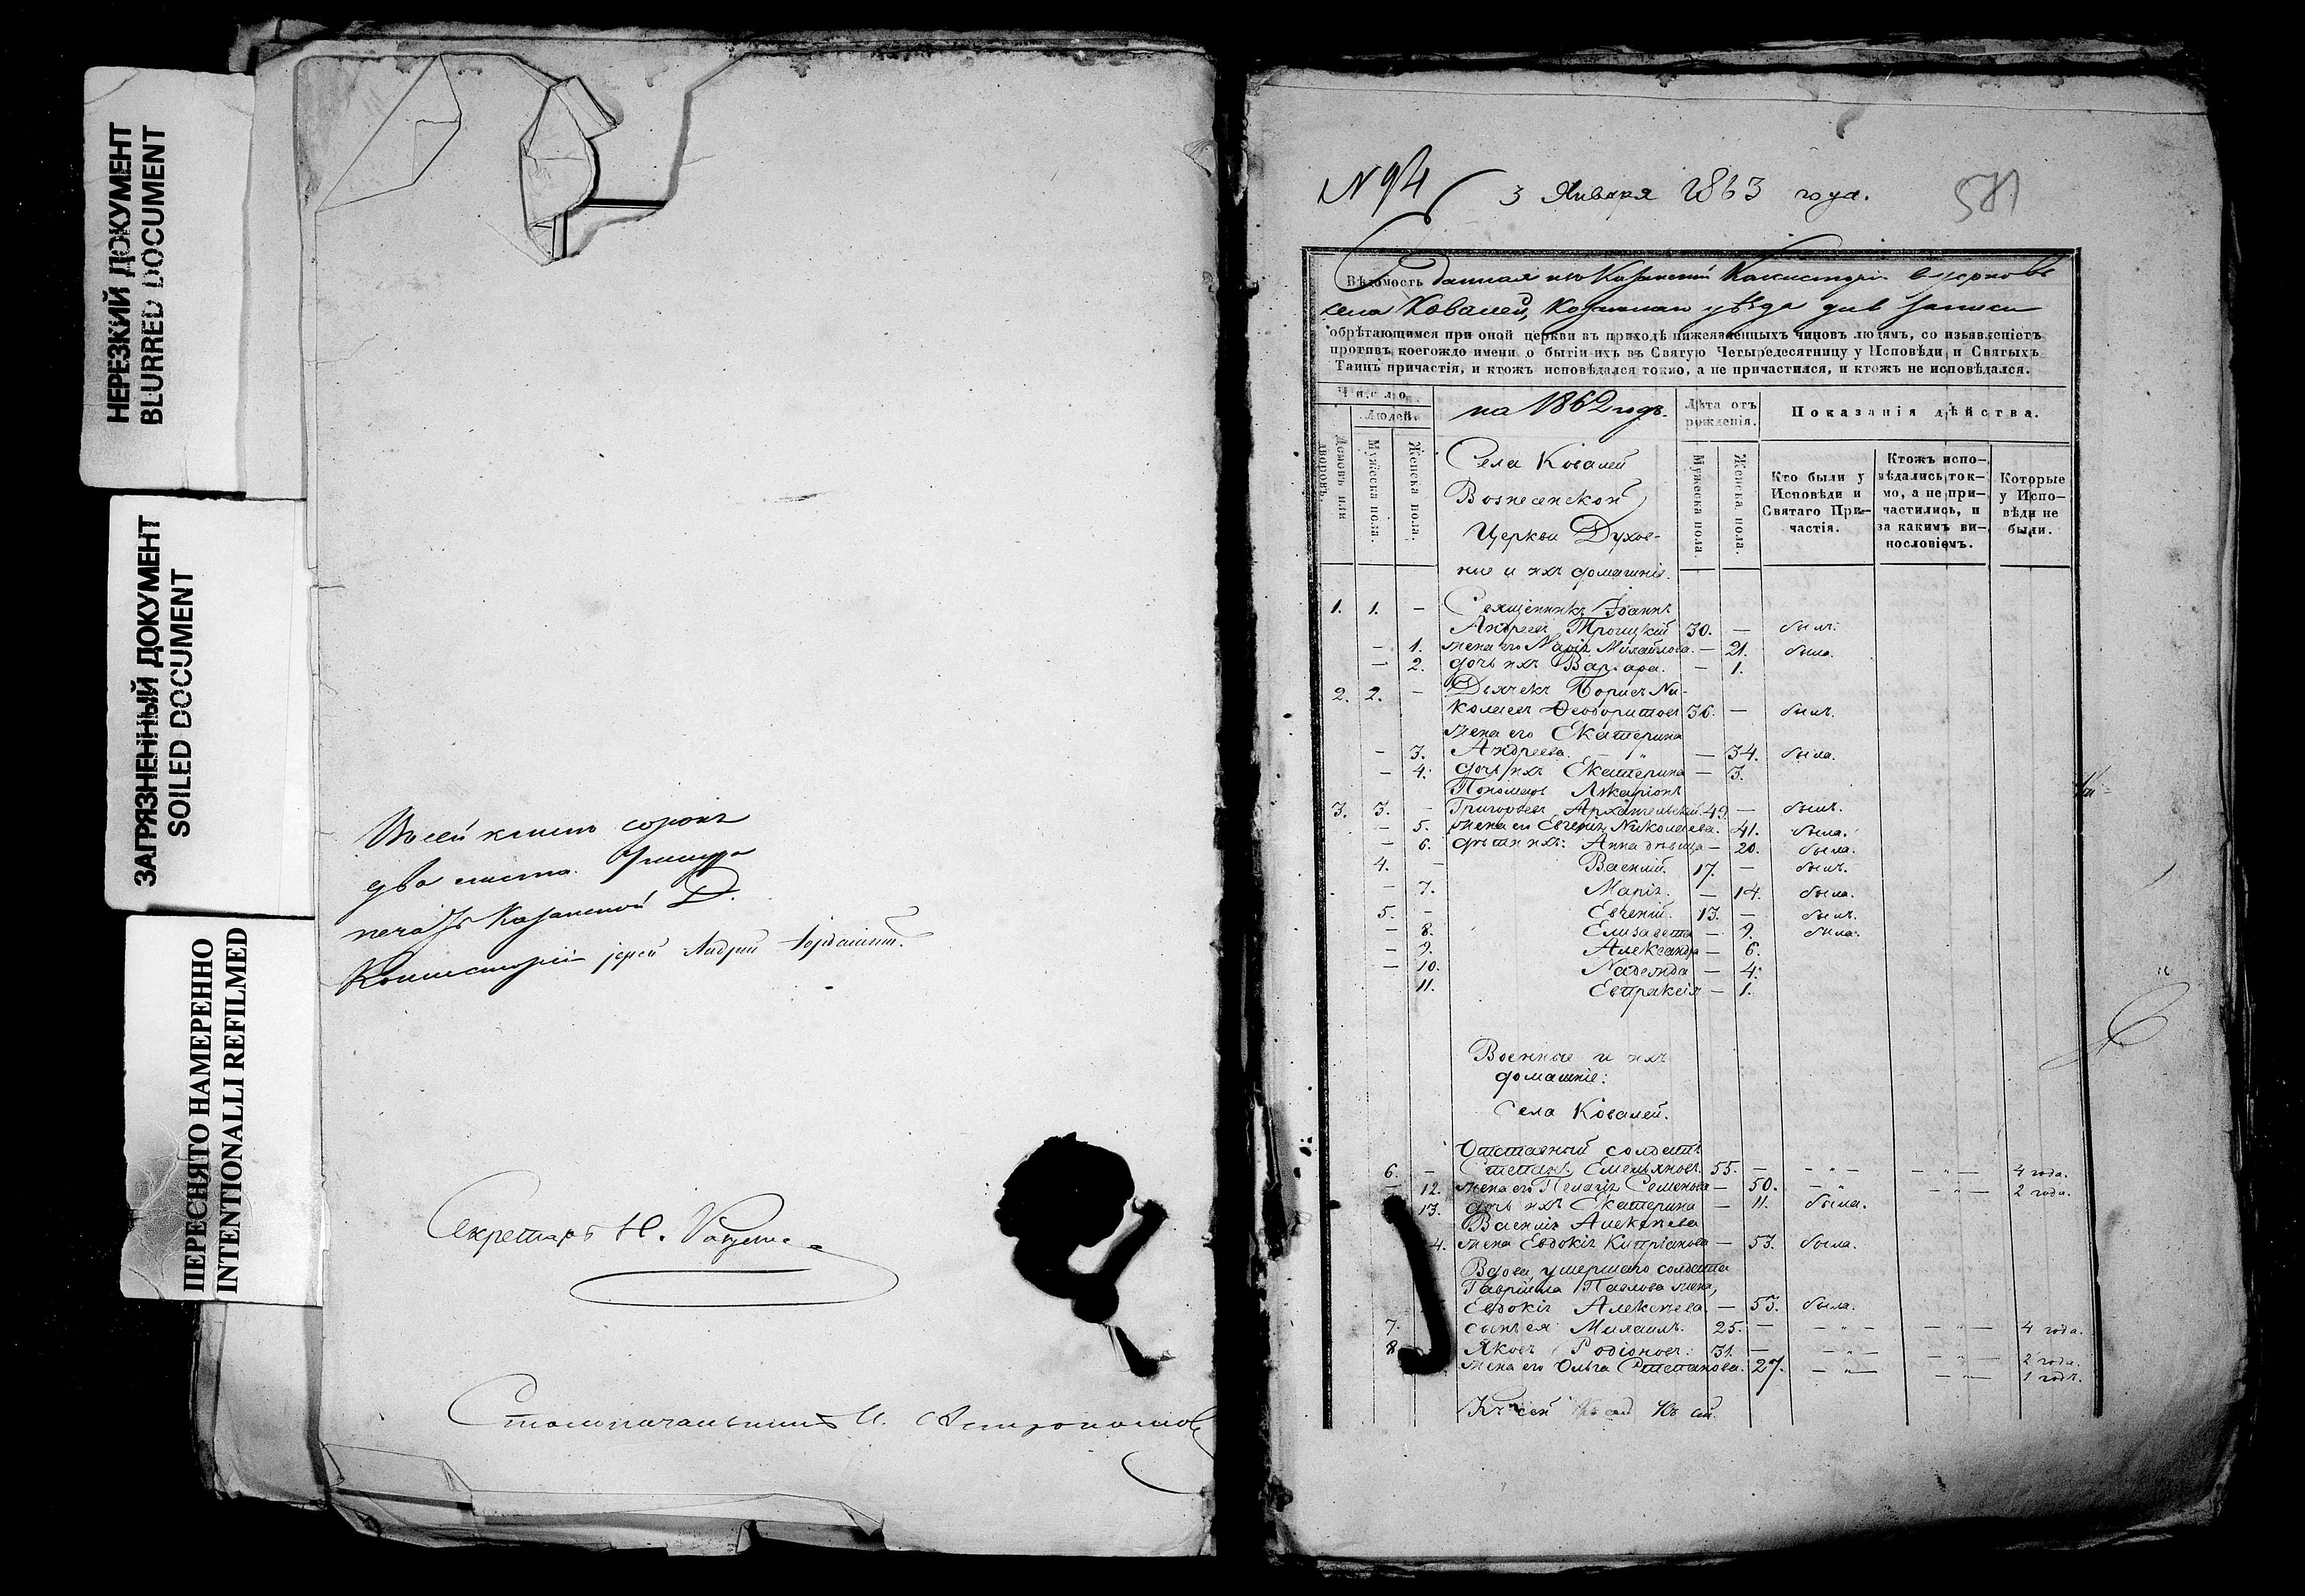 НЕРЕЗКИЙ ДОКУМЕНТ
BLURRED DOCUMENT
ЗАГРЯЗНЕННЫЙ ДОКУМЕНТ
SOILED DOCUMENT
ПЕРЕСНЯТО НАМЕРЕННО
INTENTIONALLI REFILMED
Въ сей книгѣ сорокъ
два листа.
печать Казанской Д.
Консисторіи іерей Андрей
Секретарь Н.
Столоначальникъ
N 94
3 Января 1863 года.
581
Вѣдомость данная изъ Казанской Консисторіи въ церковь
села Ковалей, Казанскаго уѣзда для записи
обрѣтающимся при оной церкви въ приходѣ нижеявленныхъ чиновъ людямъ, со изъявленіемъ
противъ коегождо имени о бытіи ихъ въ Святую Четыредесятницу у Исповѣди и Святыхъ
Таинъ причастія, и ктожъ исповѣдался токмо, а не причастился, и ктожъ не исповѣдался.
Число
Людей.
Домовъ или дворовъ.
Мужеска пола.
Женска пола.
на 1862 годъ.
Лѣта отъ рожденія.
Мужеска пола.
Женска пола.
Показанія дѣйства.
Кто были у Исповѣди и Святаго Причастія.
Ктожъ исповѣдались токмо, а не причастились, и за какимъ винословіемъ.
Которые у Исповѣди не были.
Села Ковалей
Вознесенской
Церкви Духов-
ные и ихъ домашніе.
1. 1. – Священникъ Іоаннъ
Андреевъ Троицкій 30. – былъ.
– 1. жена его Марія Михайлова. – 21. была.
– 2. дочь ихъ Варвара. – 1.
2. 2. – Дьячекъ Борисъ Ни-
колаевъ Ѳеодоритовъ 36. – былъ.
жена его Екатерина
– 3. Андреева. – 34. была.
– 4. дочь ихъ Екатерина – 3.
Пономарь Иларіонъ
3. 3. – Григорьевъ Архангельскій 49. – былъ.
– 5. жена его Евгенія Николаева. 41. была.
– 6. дѣти ихъ: Анна дѣвица – 20. была.
4. – Василій. 17. – былъ.
– 7. Марія. – 14. была.
5. – Евгеній. 13. – былъ.
– 8. Елизавета – 9. была.
– 9. Александра – 6.
– 10. Надежда – 4.
11. Евпраксія – 1.
Военные и ихъ
домашніе:
Села Ковалей.
Отставный солдатъ
6. – Степанъ Емельяновъ. 55. – – „ – – „ – 4 года.
– 12. жена его Пелагія Семенова – 50. – „ – „ – 2 года.
13. дочь ихъ Екатерина – 11. была.
Василія Алексѣева
4. жена Евдокія Кипріанова – 53. была.
Вдова умершаго солдата
Гавріила Павлова жена,
Евдокія Алексѣева – 53. была.
7. сынъ ея Михаилъ. 25. – – „ – – „ – 4 года.
8 Яковъ Родіоновъ. 31. – – „ – – „ – 2 года.
жена его Ольга Степанова. 27. – „ – – „ – 1 годъ.